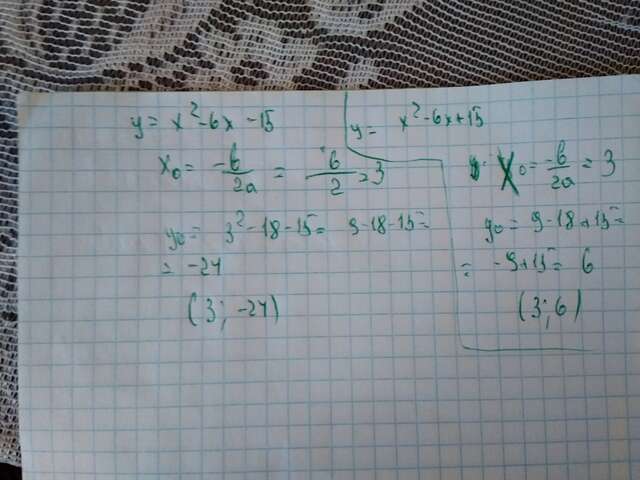 y = x² - 6x - 15
x₀ = -b/2a = 6/2 = 3
y₀ = 3² - 18 - 15 = 9 - 18 - 15 =
= -24
(3; -24)
y = x² - 6x + 15
x₀ = -b/2a = 3
y₀ = 9 - 18 + 15 =
= -9 + 15 = 6
(3; 6)